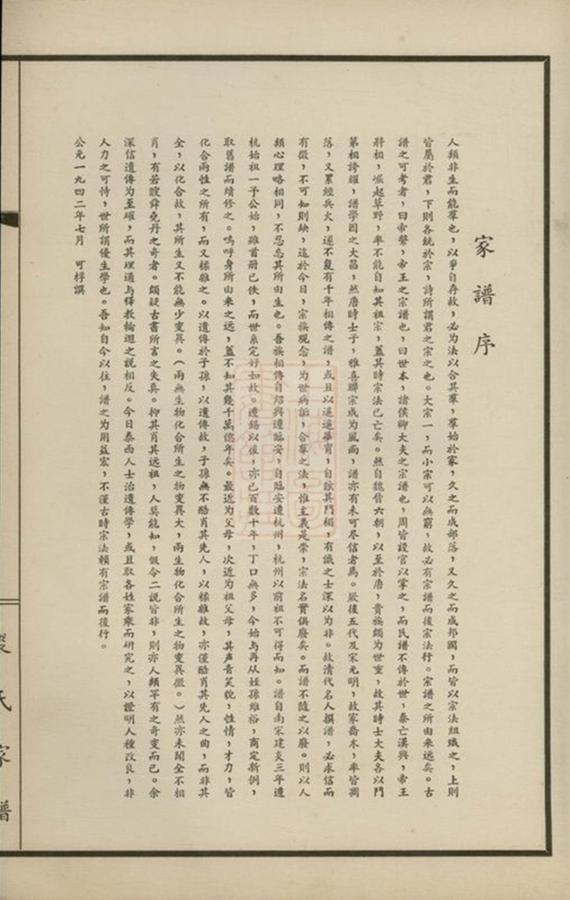 家譜序
人類非生而能羣也，以爭自存故，必為法以合其羣，羣始於家，久之而成部落，又久之而成邦國，而皆以宗法組織之，上則
皆屬於君，下則各統於宗，詩所謂君之宗之也。大宗一，而小宗可以無窮，故必有宗譜而後宗法行。宗譜之所由來遠矣。古
譜之可考者，曰帝繫，帝王之宗譜也，曰世本，諸侯卿大夫之宗譜也，周皆設官以掌之，而民譜不傳於世，秦亡漢興，帝王
將相，崛起草野，率不能自知其祖宗，蓋其時宗法已亡矣。然自魏晉六朝，以至於唐，貴族頗為世重，故其時士大夫各以門
第相誇耀，譜學因之大昌，然唐時士子，雅喜聯宗成為風尚，譜亦有未可盡信者焉。厥後五代及宋元明，故家喬木，率皆凋
落，又累經兵火，遂不復有千年相傳之譜，或且以遙遙華胄，自詡其門楣，有識之士深以為非。故清代名人撰譜，必求信而
有徵，不可知則缺，迄於今日，宗族觀念，為世病詬，合羣之法，惟主義是崇，宗法名實俱廢矣。而譜不隨之以廢。則以人
類心理略相同，不忍忘其所由生也。吾族相傳自紹興遷臨安，自臨安遷杭州，杭州以前祖不可得而知。譜自南宋建炎三年遷
杭始祖一予公始，雖首冊已佚，而世系完好如故。遭錫以後，亦已百數十年，丁口無多，今始與再從姪孫維裕，商定新例，
取舊譜而續修之。嗚呼身所由來之遠，蓋不知其幾千萬億年矣。最近為父母，次近為祖父母，其聲音笑貌，性情，才力，皆
化合兩性之所有，而又樣雜之。以遺傳於子孫，以遺傳故，子孫無不酷肖其先人，以樣雜故，亦僅酷肖其先人之曲，而非其
全，以化合故，其所生又不能無少變異。（兩無生物化合所生之物變異大，兩生物化合所生之物變異微。）然亦未聞全不相
肖，有若瞍舜堯丹之奇者。頗疑古書所言之失真。抑其肖其遠祖，人莫能知，假令二說皆非，則亦人類罕有之奇變而已。余
深信遺傳為至確，而其理適與釋教輪迴之說相反。今日泰西人士治遺傳學，或且取各姓家乘而研究之，以證明人種改良，非
人力之可恃，世所謂優生學也。吾知自今以往，譜之為用益宏，不僅古時宗法賴有宗譜而後行。
公元一九四二年七月　可桴譔
氏家譜